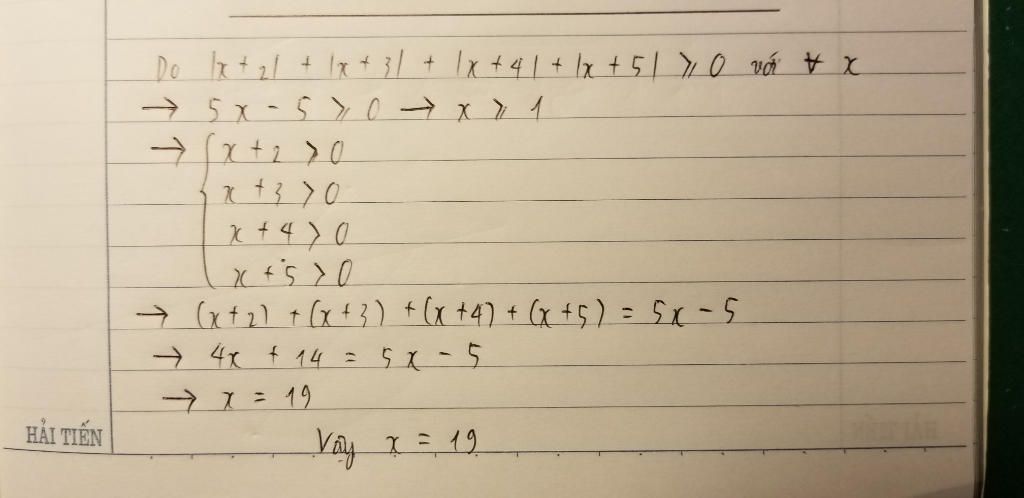 Do |x+2| + |x+3| + |x+4| + |x+5| ⩾ 0 với ∀ x
→ 5x - 5 ⩾ 0 → x ⩾ 1
→ { x + 2 > 0
x + 3 > 0
x + 4 > 0
x + 5 > 0
→ (x+2) + (x+3) + (x+4) + (x+5) = 5x - 5
→ 4x + 14 = 5x - 5
→ x = 19
HẢI TIẾN
Vậy x = 19